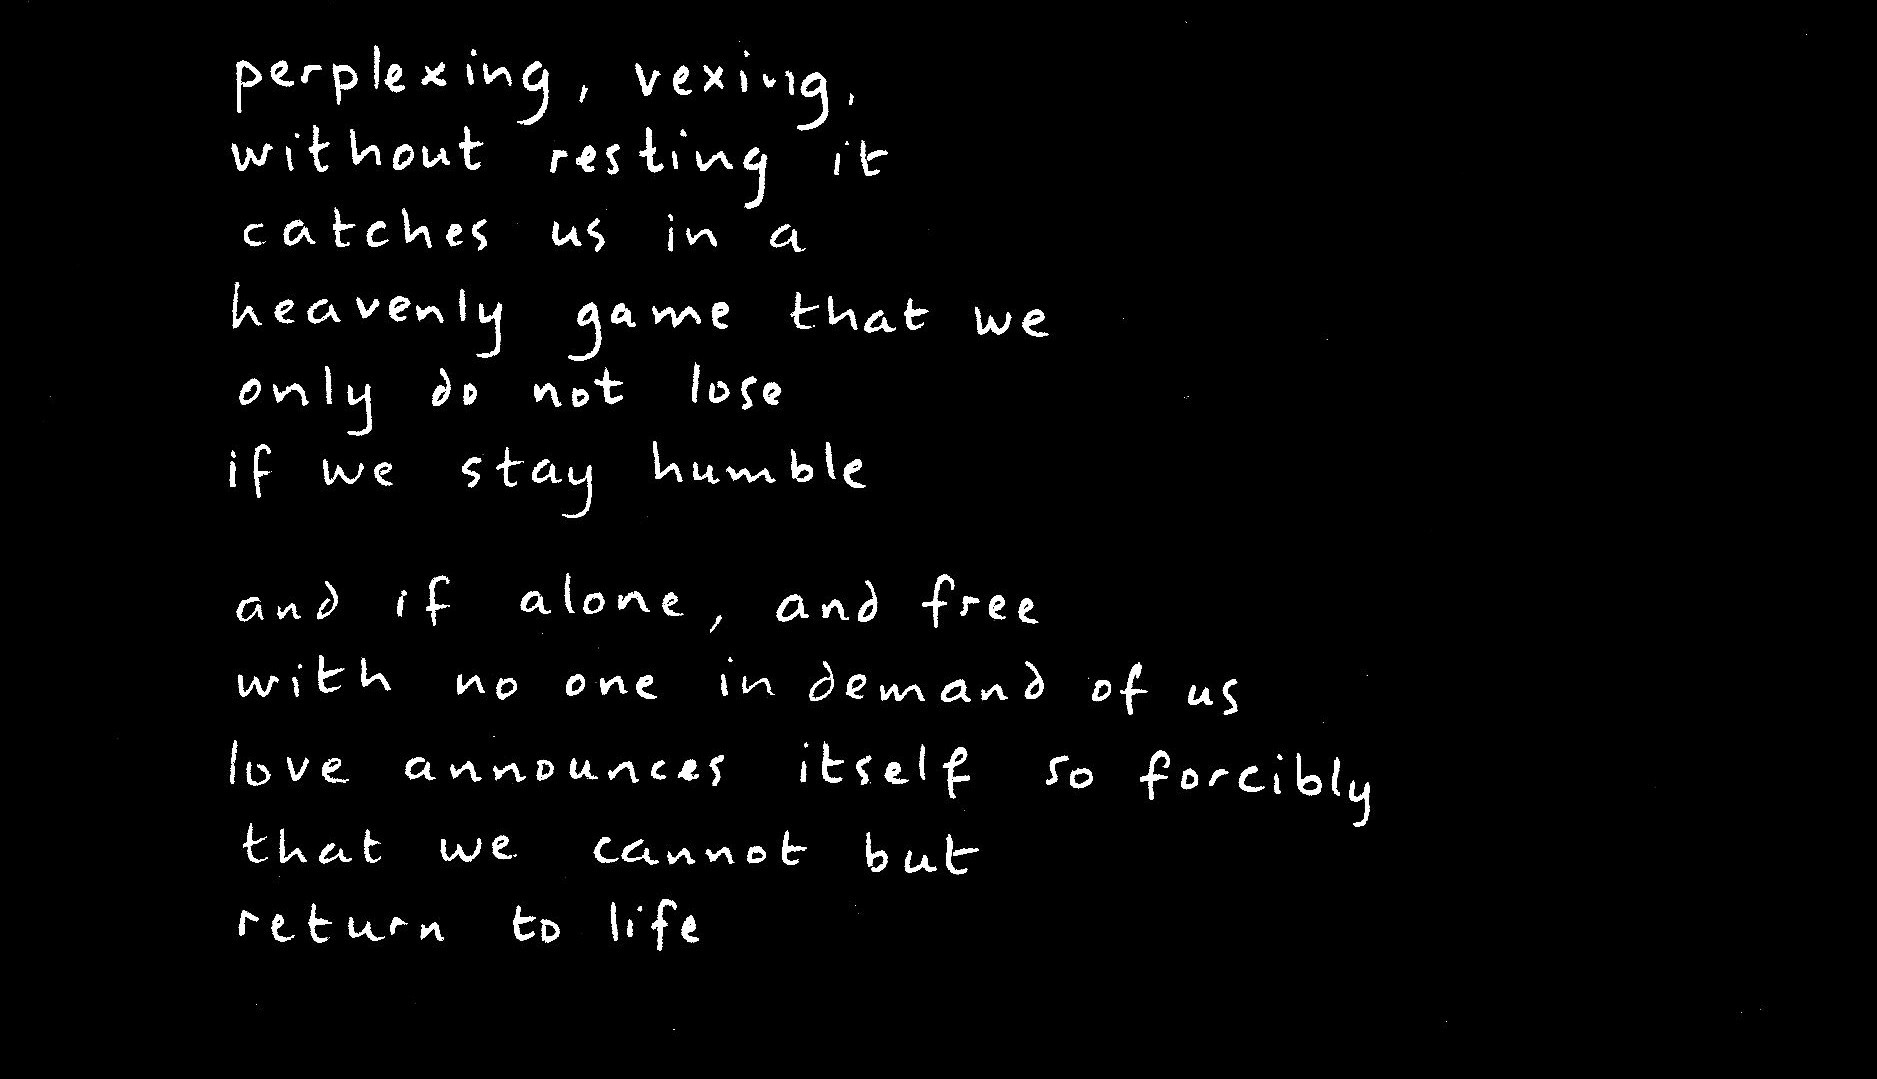 perplexing, vexing,
without resting it
catches us in a
heavenly game that we
only do not lose
if we stay humble
and if alone, and free
with no one in demand of us
love announces itself so forcibly
that we cannot but
return to life